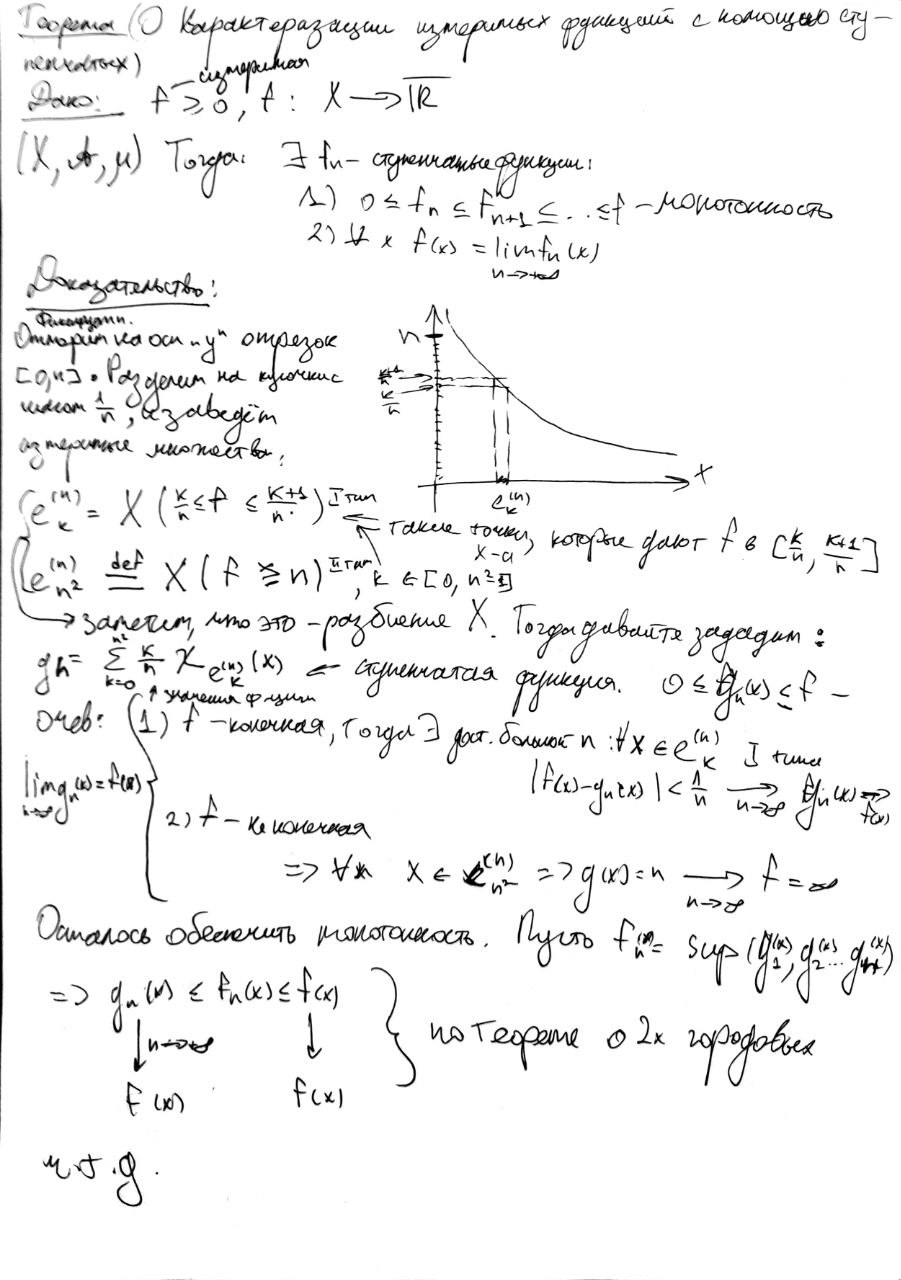 Теорема (О Характеризации измеримых функций с помощью сту-
пенчатых)
измеримая
Дано: f ≥ 0, f : X → R̅
(X, A, μ) Тогда: ∃ fn - ступенчатые функции:
1) 0 ≤ fn ≤ fn+1 ≤ ... ≤ f - монотонность
2) ∀ x f(x) = lim fn(x)
n→+∞
Доказательство:
n
на оси "y" отрезок
[0,n]. Разделим на кусочки
k+1/n
k/n
1/n, и заведём
измеримые множества:
x
e_k^(n)
e_k^(n) = X (k/n ≤ f ≤ k+1/n) I тип ← такие точки, которые дают f в [k/n, k+1/n]
X-а
e_n²^(n) def= X(f ≥ n) II тип, k ∈ [0, n²]
→ заметим, что это - разбиение X. Тогда давайте зададим:
gn = Σ_{k=0}^{n²} k/n χ_{e_k^(n)}(x) ← ступенчатая функция. 0 ≤ gn(x) ≤ f -
↑ значения ф-ции
очев: (1) f - конечная, тогда ∃ дост. большой n : ∀x ∈ e_k^(n) I типа
lim gn(x) = f(x)
n→∞
|f(x) - gn(x)| < 1/n → n→∞ gn(x) → f(x)
2) f - не конечная
=> ∀n x ∈ e_n²^(n) => g(x) = n → n→∞ f = ∞
Осталось обеспечить монотонность. Пусть fn(x) = sup(g1(x), g2(x) ... gn(x))
=> gn(x) ≤ fn(x) ≤ f(x)
↓ n→∞ ↓
f(x) f(x)
} по Теореме о 2х городовых
ч.т.д.